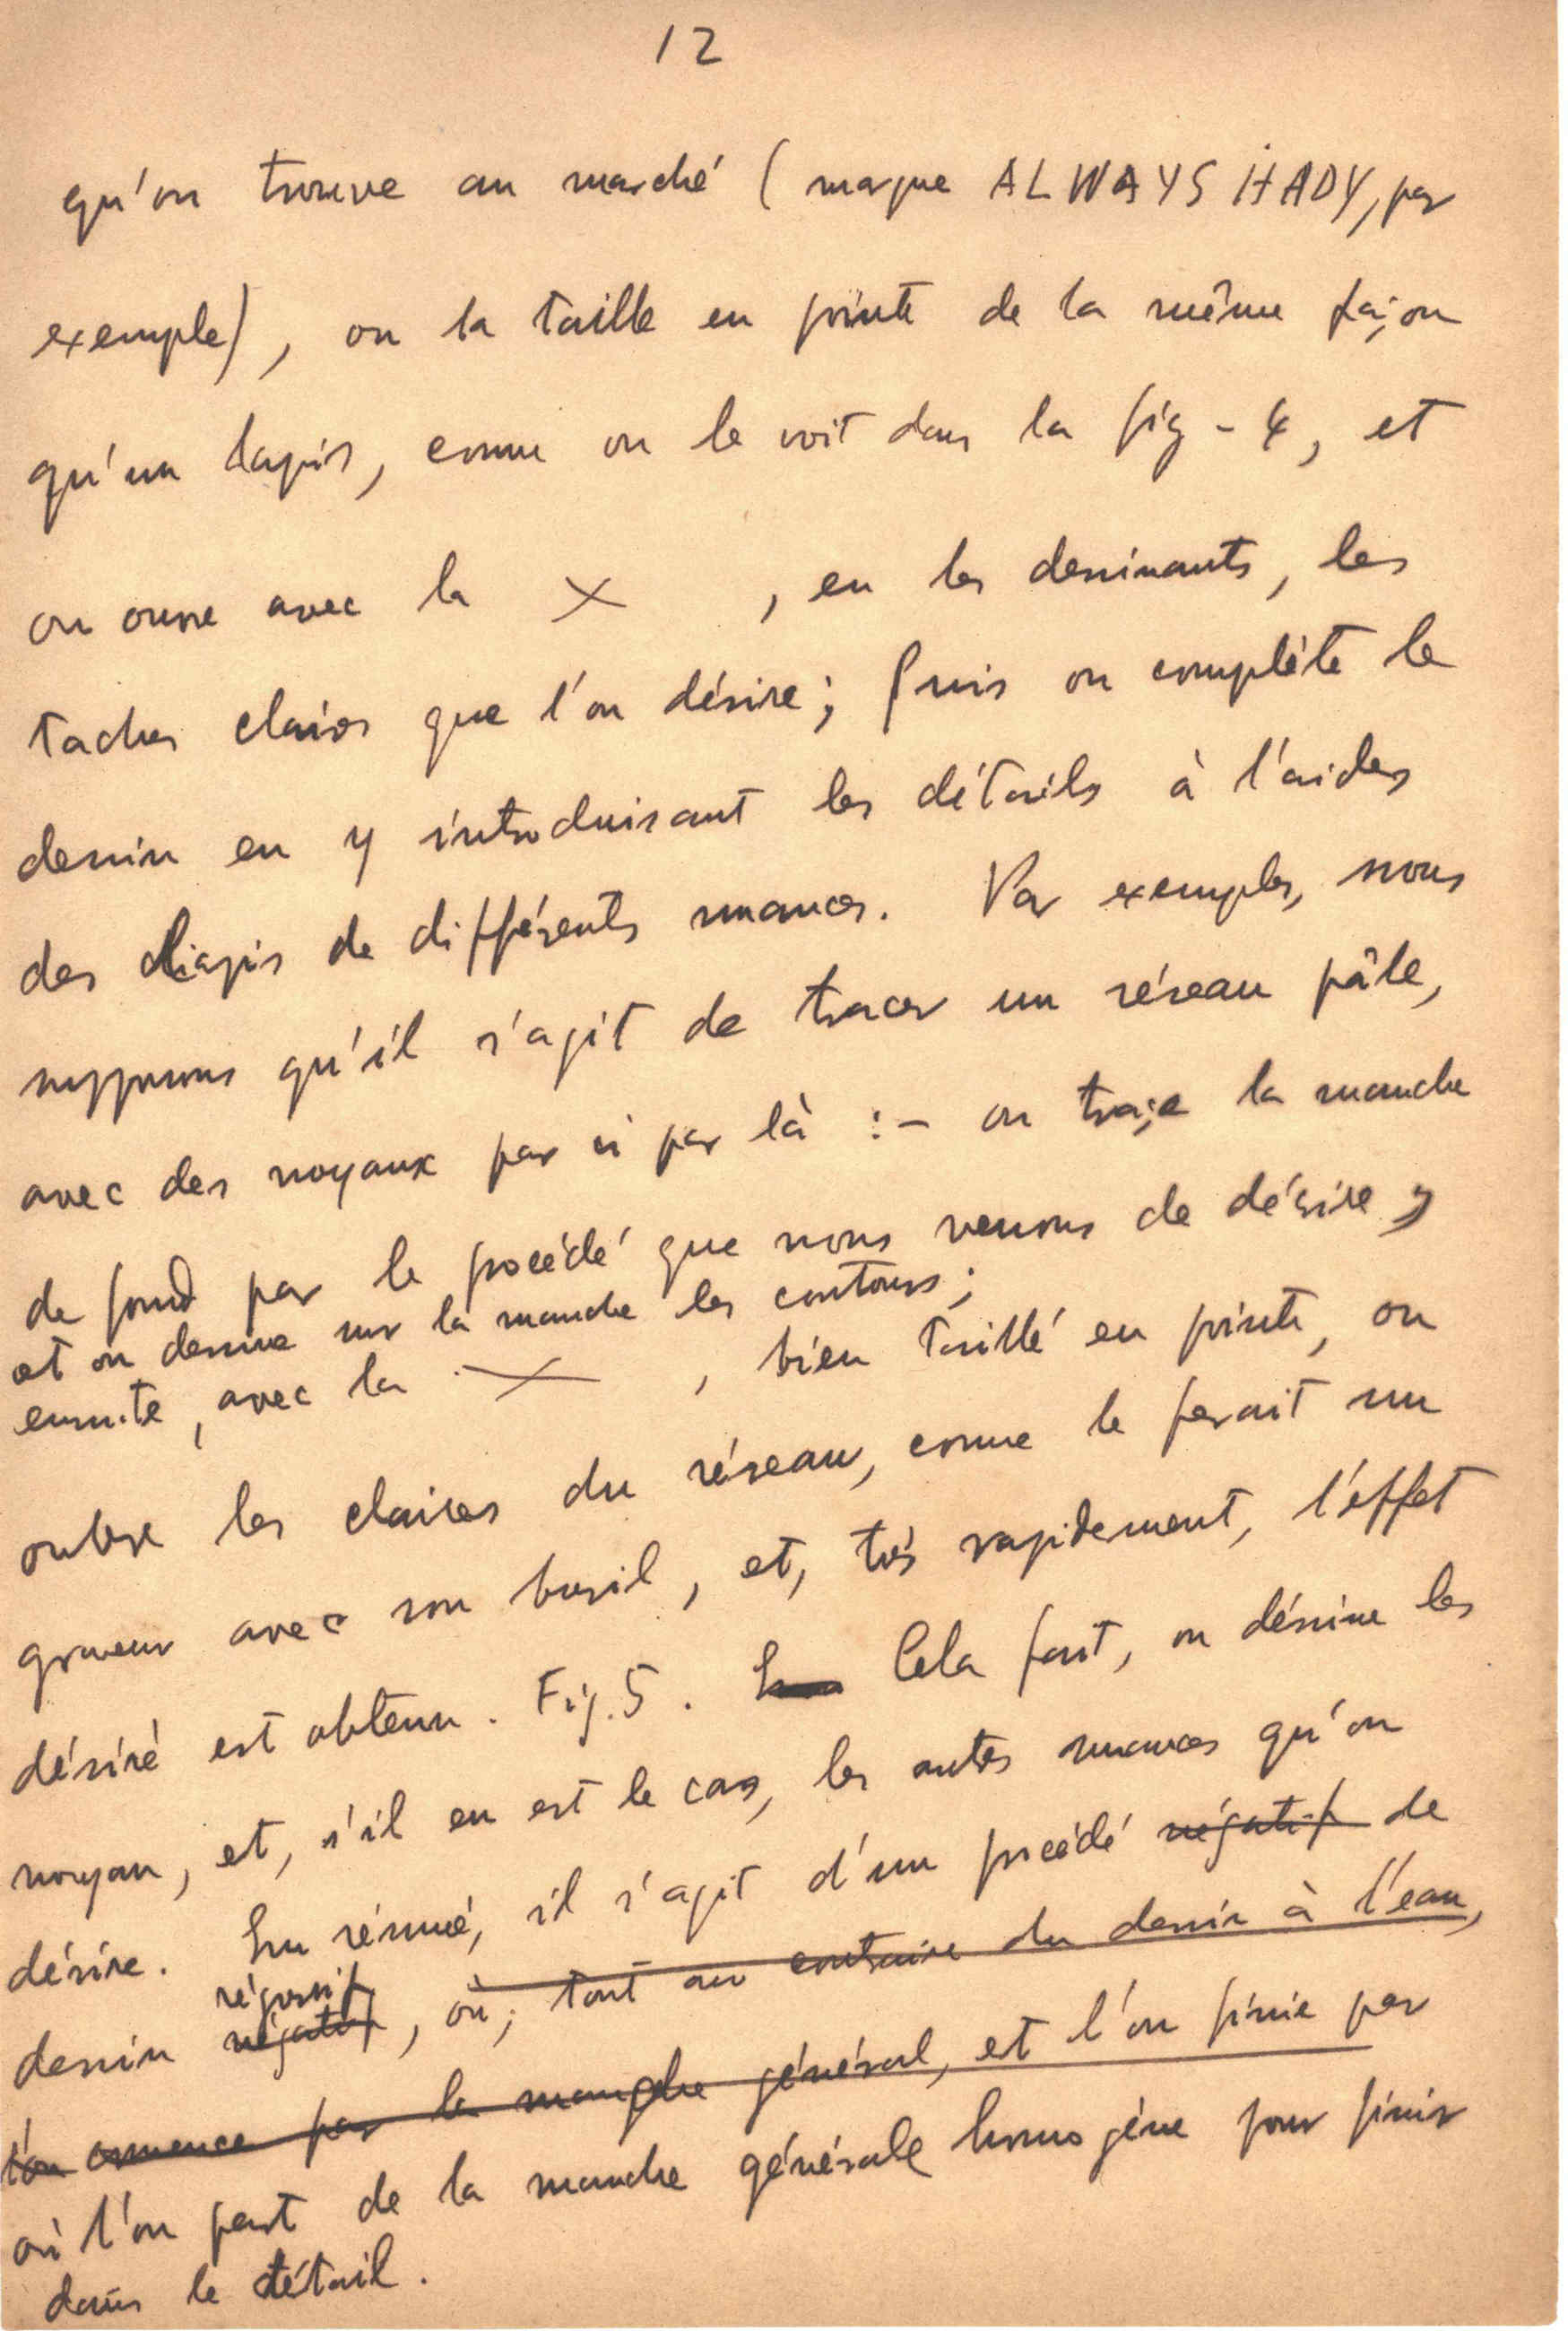 12
qu'on trouve au marché (marque ALWAYS HADY, par
exemple), on la taille en pointe de la même façon
qu'un lapis, comme on le voit dans la fig-4, et
on ouvre avec la X , en les dessinants, les
taches claires que l'on désire; Puis on complète le
dessin en y introduisant les détails à l'aides
des lapis de différents nuances. Par exemples, nous
supposons qu'il s'agit de tracer un réseau pâle,
avec des noyaux par ci par là :- on traçe la manche
de fond par le procédé que nous venons de décrire,
et on dessine sur la manche les contours;
ensuite, avec la X , bien taillé en pointe, on
outvre les claires du réseau, comme le ferait un
graveur avec son buril, et, très rapidement, l'effet
désiré est obtenu. Fig. 5. Cela fait, on déssine les
noyau, et, s'il en est le cas, les autres nuances qu'on
désire. En résumé, il s'agit d'un procédé négatif de
régressif
dessin négatif, où, tout au contraire du dessin à l'eau,
l'on commence par la manche général, et l'on finie par
où l'on part de la manche générale homogène pour finir
dans le détail.